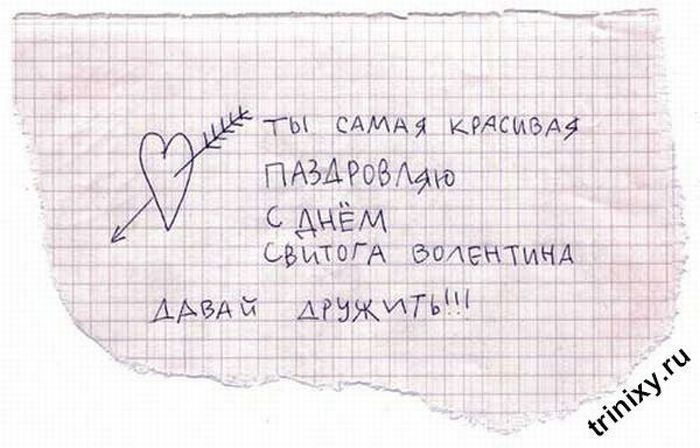 ТЫ САМАЯ КРАСИВАЯ
ПАЗДРОВЛЯЮ
С ДНЁМ
СВИТОГА ВОЛЕНТИНА
ДАВАЙ ДРУЖИТЬ!!!
trinixy.ru